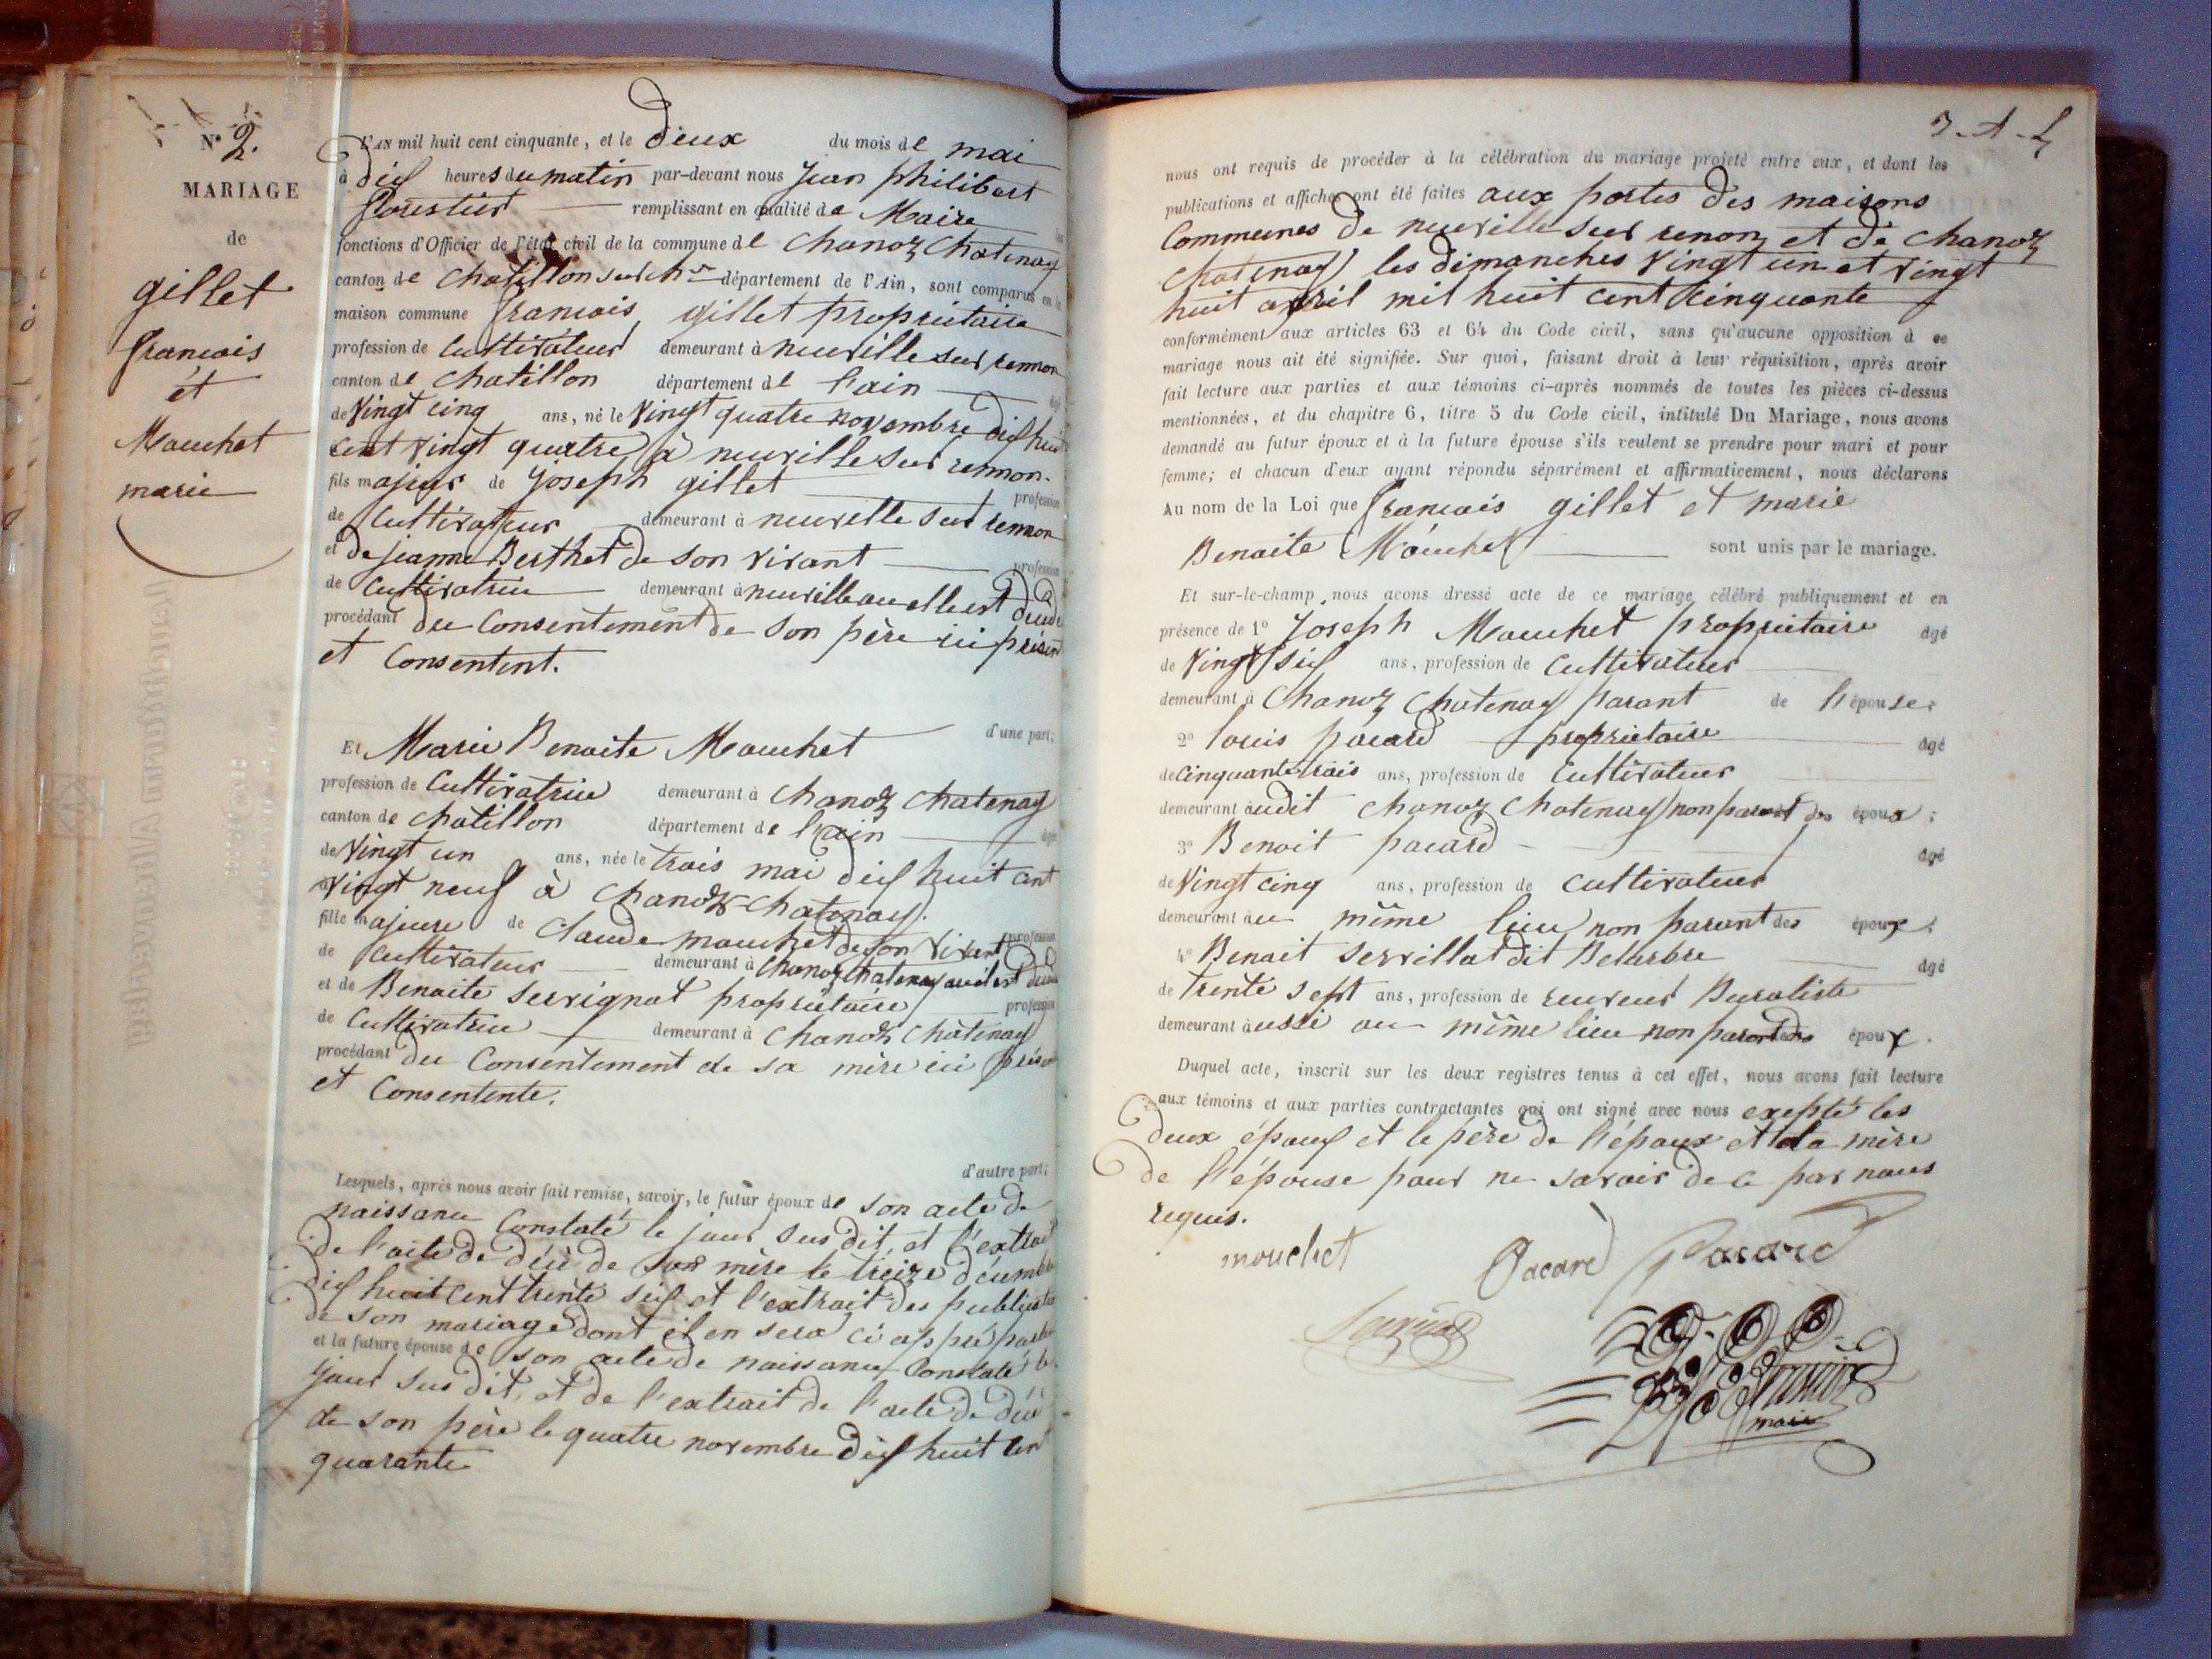 N° 2.
MARIAGE
de
gillet
francois
et
Mouchet
marie
L'AN mil huit cent cinquante, et le deux du mois de mai
à dix heures du matin par-devant nous Jean philibert
forestier remplissant en qualité de Maire
fonctions d'Officier de l'état civil de la commune de Chanoz Chatenay
canton de Chatillon sur ch.ne département de l'Ain, sont comparus en la
maison commune francois gillet propriétaire
profession de Cultivateur demeurant à neuville sur rennon
canton de Chatillon département de l'ain
de Vingt cinq ans, né le Vingt quatre novembre dix huit
cent vingt quatre à neuville sur rennon.
fils majeur de Joseph gillet profession
de Cultivateur demeurant à neuville sur rennon
et de jeanne Berthet de son vivant profession
de Cultivatrice demeurant à neuville ou elle est décédé
procédant du Consentement de son père ici présent
et Consentent.
d'une part;
Et Marie Benoite Mouchet
profession de Cultivatrice demeurant à Chanoz Chatenay
canton de Chatillon département de l'ain
de Vingt un ans, née le trois mai dix huit cent
vingt neuf à Chanoz Chatenay.
fille majeure de Claude mouchet de son vivent profession
de Cultivateur demeurant à Chanoz Chatenay ou il est décédé
et de Benoite Servignat propriétaire profession
de Cultivatrice demeurant à Chanoz Chatenay
procédant du Consentement de sa mère ici présente
et Consentente.
d'autre part;
Lesquels, après nous avoir fait remise, savoir, le futur époux de son acte de
naissance Constaté le jour sus dit et l'extrait
de l'acte de décè de son mère le treize décembre
dix huit cent trente six et l'extrait des publications
de son mariage dont il en sera ci après parlé
et la future épouse de son acte de naissance Constaté le
jour sus dit, et de l'extrait de l'acte de décè
de son père le quatre novembre dix huit cent
quarante
nous ont requis de procéder à la célébration du mariage projeté entre eux, et dont les
publications et affiches ont été faites aux portes des maisons
Communes de neuville sur renon et de Chanoz
Chatenay les dimanches vingt un et vingt
huit avril mil huit cent cinquante
conformément aux articles 63 et 64 du Code civil, sans qu'aucune opposition à ce
mariage nous ait été signifiée. Sur quoi, faisant droit à leur réquisition, après avoir
fait lecture aux parties et aux témoins ci-après nommés de toutes les pièces ci-dessus
mentionnées, et du chapitre 6, titre 5 du Code civil, intitulé Du Mariage, nous avons
demandé au futur époux et à la future épouse s'ils veulent se prendre pour mari et pour
femme; et chacun d'eux ayant répondu séparément et affirmativement, nous déclarons
Au nom de la Loi que francois gillet et marie
Benoite Mouchet sont unis par le mariage.
Et sur-le-champ nous avons dressé acte de ce mariage célébré publiquement et en
présence de 1° Joseph Mouchet propriétaire agé
de Vingt six ans, profession de Cultivateur
demeurant à Chanoz Chatenay parant de l'épouse;
2° louis pacard propriétaire agé
de Cinquante trois ans, profession de Cultivateur
demeurant audit Chanoz Chatenay non parant des époux;
3° Benoit pacard agé
de Vingt cinq ans, profession de Cultivateur
demeurant au même lieu non parant des époux;
4° Benoit Servillat dit Belarbre agé
de trente sept ans, profession de receveur Buraliste
demeurant aussi au même lieu non parant des époux.
Duquel acte, inscrit sur les deux registres tenus à cet effet, nous avons fait lecture
aux témoins et aux parties contractantes qui ont signé avec nous excepté les
deux époux et le père de l'époux et la mère
de l'épouse pour ne savoir de ce par nous
requis.
mouchet Pacard Pacard
maire